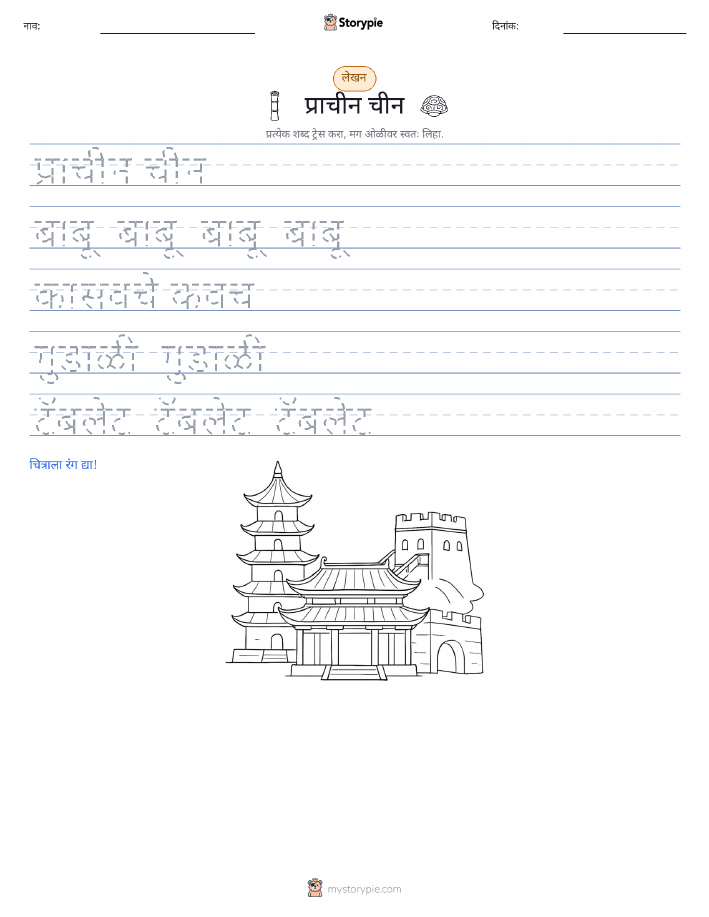 नाव:
Storypie
दिनांक:
लेखन
प्राचीन चीन
प्रत्येक शब्द ट्रेस करा, मग ओळीवर स्वतः लिहा.
प्राचीन चीन
बाबू बाबू बाबू बाबू
कासवचे कवच
गुडाळी गुडाळी
टॅबलेट टॅबलेट टॅबलेट
चित्राला रंग द्या!
mystorypie.com